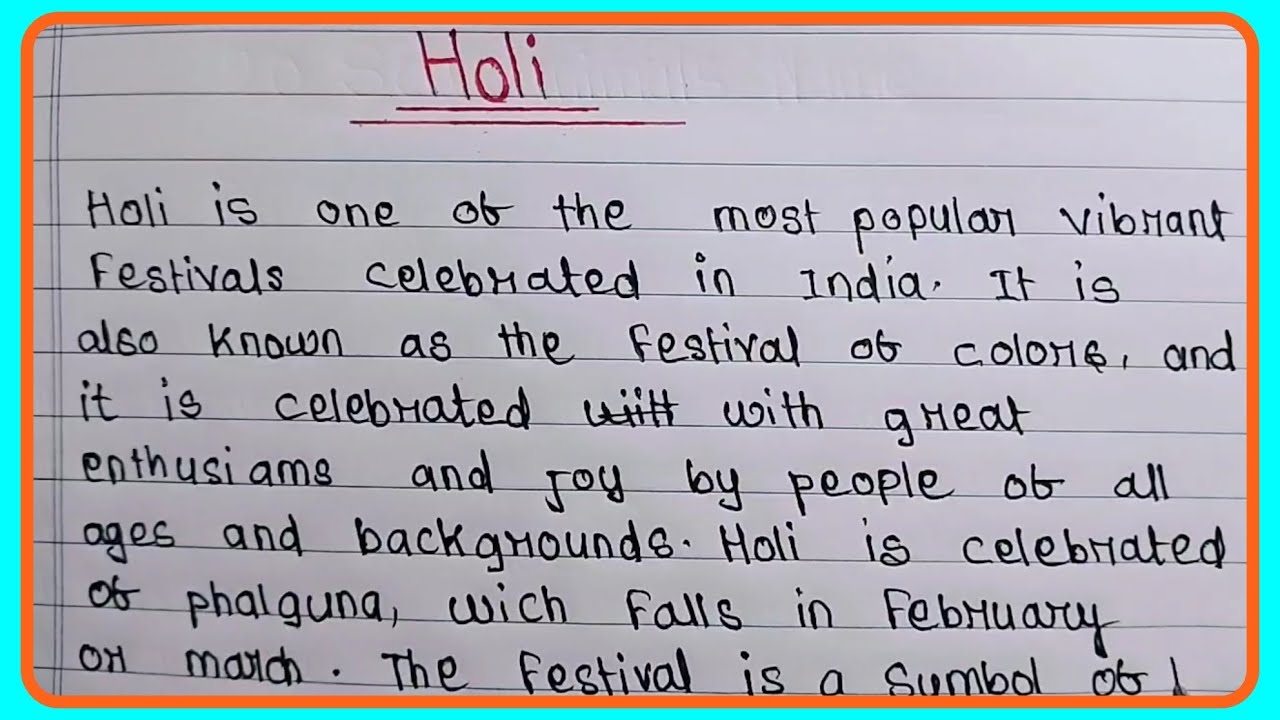 Holi
Holi is one of the most popular vibrant
Festivals celebrated in India. It is
also known as the Festival of colors, and
it is celebrated with great
enthusiams and joy by people of all
ages and backgrounds. Holi is celebrated
of phalguna, wich Falls in February
or march. The Festival is a Sumbol of